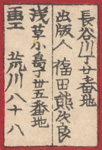 長谷川丁廿番地
出版人 福田熊次良
浅草小島丁廿五番地
画工 荒川八十八